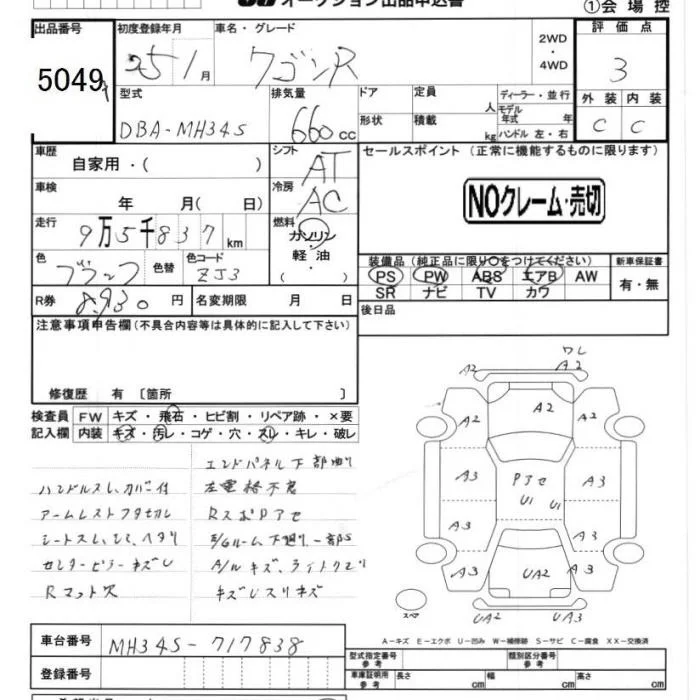 オークション出品申込書
①会場控
出品番号 初度登録年月 車名・グレード 評価点
5049 25 1月 ワゴンR 2WD・4WD 3
型式 排気量 ドア 定員 人 ディーラー・並行 外装 内装
DBA-MH34S 660cc 形状 積載 kg モデル年式 年 ハンドル 左・右 C C
車歴 シフト セールスポイント (正常に機能するものに限ります)
自家用・( ) AT
車検 冷房 NOクレーム・売切
年 月( 日) AC
走行 燃料
9万5千837km ガソリン・軽油・( )
色 色替 色コード 装備品(純正品に限り○をつけてください) 新車保証書
ブラック ZJ3 PS PW ABS エアB AW 有・無
R券 8930円 名変期限 月 日 SR ナビ TV カワ
後日品
注意事項申告欄(不具合内容等は具体的に記入して下さい)
修復歴 有〔箇所 〕
検査員 FW キズ・飛石・ヒビ割・リペア跡・×要
記入欄 内装 キズ・汚レ・コゲ・穴・スレ・キレ・破レ
エンドパネル下部曲り
ハンドルスレ、カバー付
アームレストフタセカレ
センターピラーキズU
Rマット穴
A/Wキズ、ライトクモリ
ワレ
A2 A2
A2 A2 A2
A3 Pアセ A3
U1 U1
A3 A3
A3 UA2 A3
スペア UA2 UA3
A-キズ E-エクボ U-凹み W-補修跡 S-サビ C-腐食 XX-交換済
車台番号 MH34S-717838
型式指定番号 参考 類別区分番号 参考
登録番号 車庫証明用 参考 長さ cm 幅 cm 高さ cm